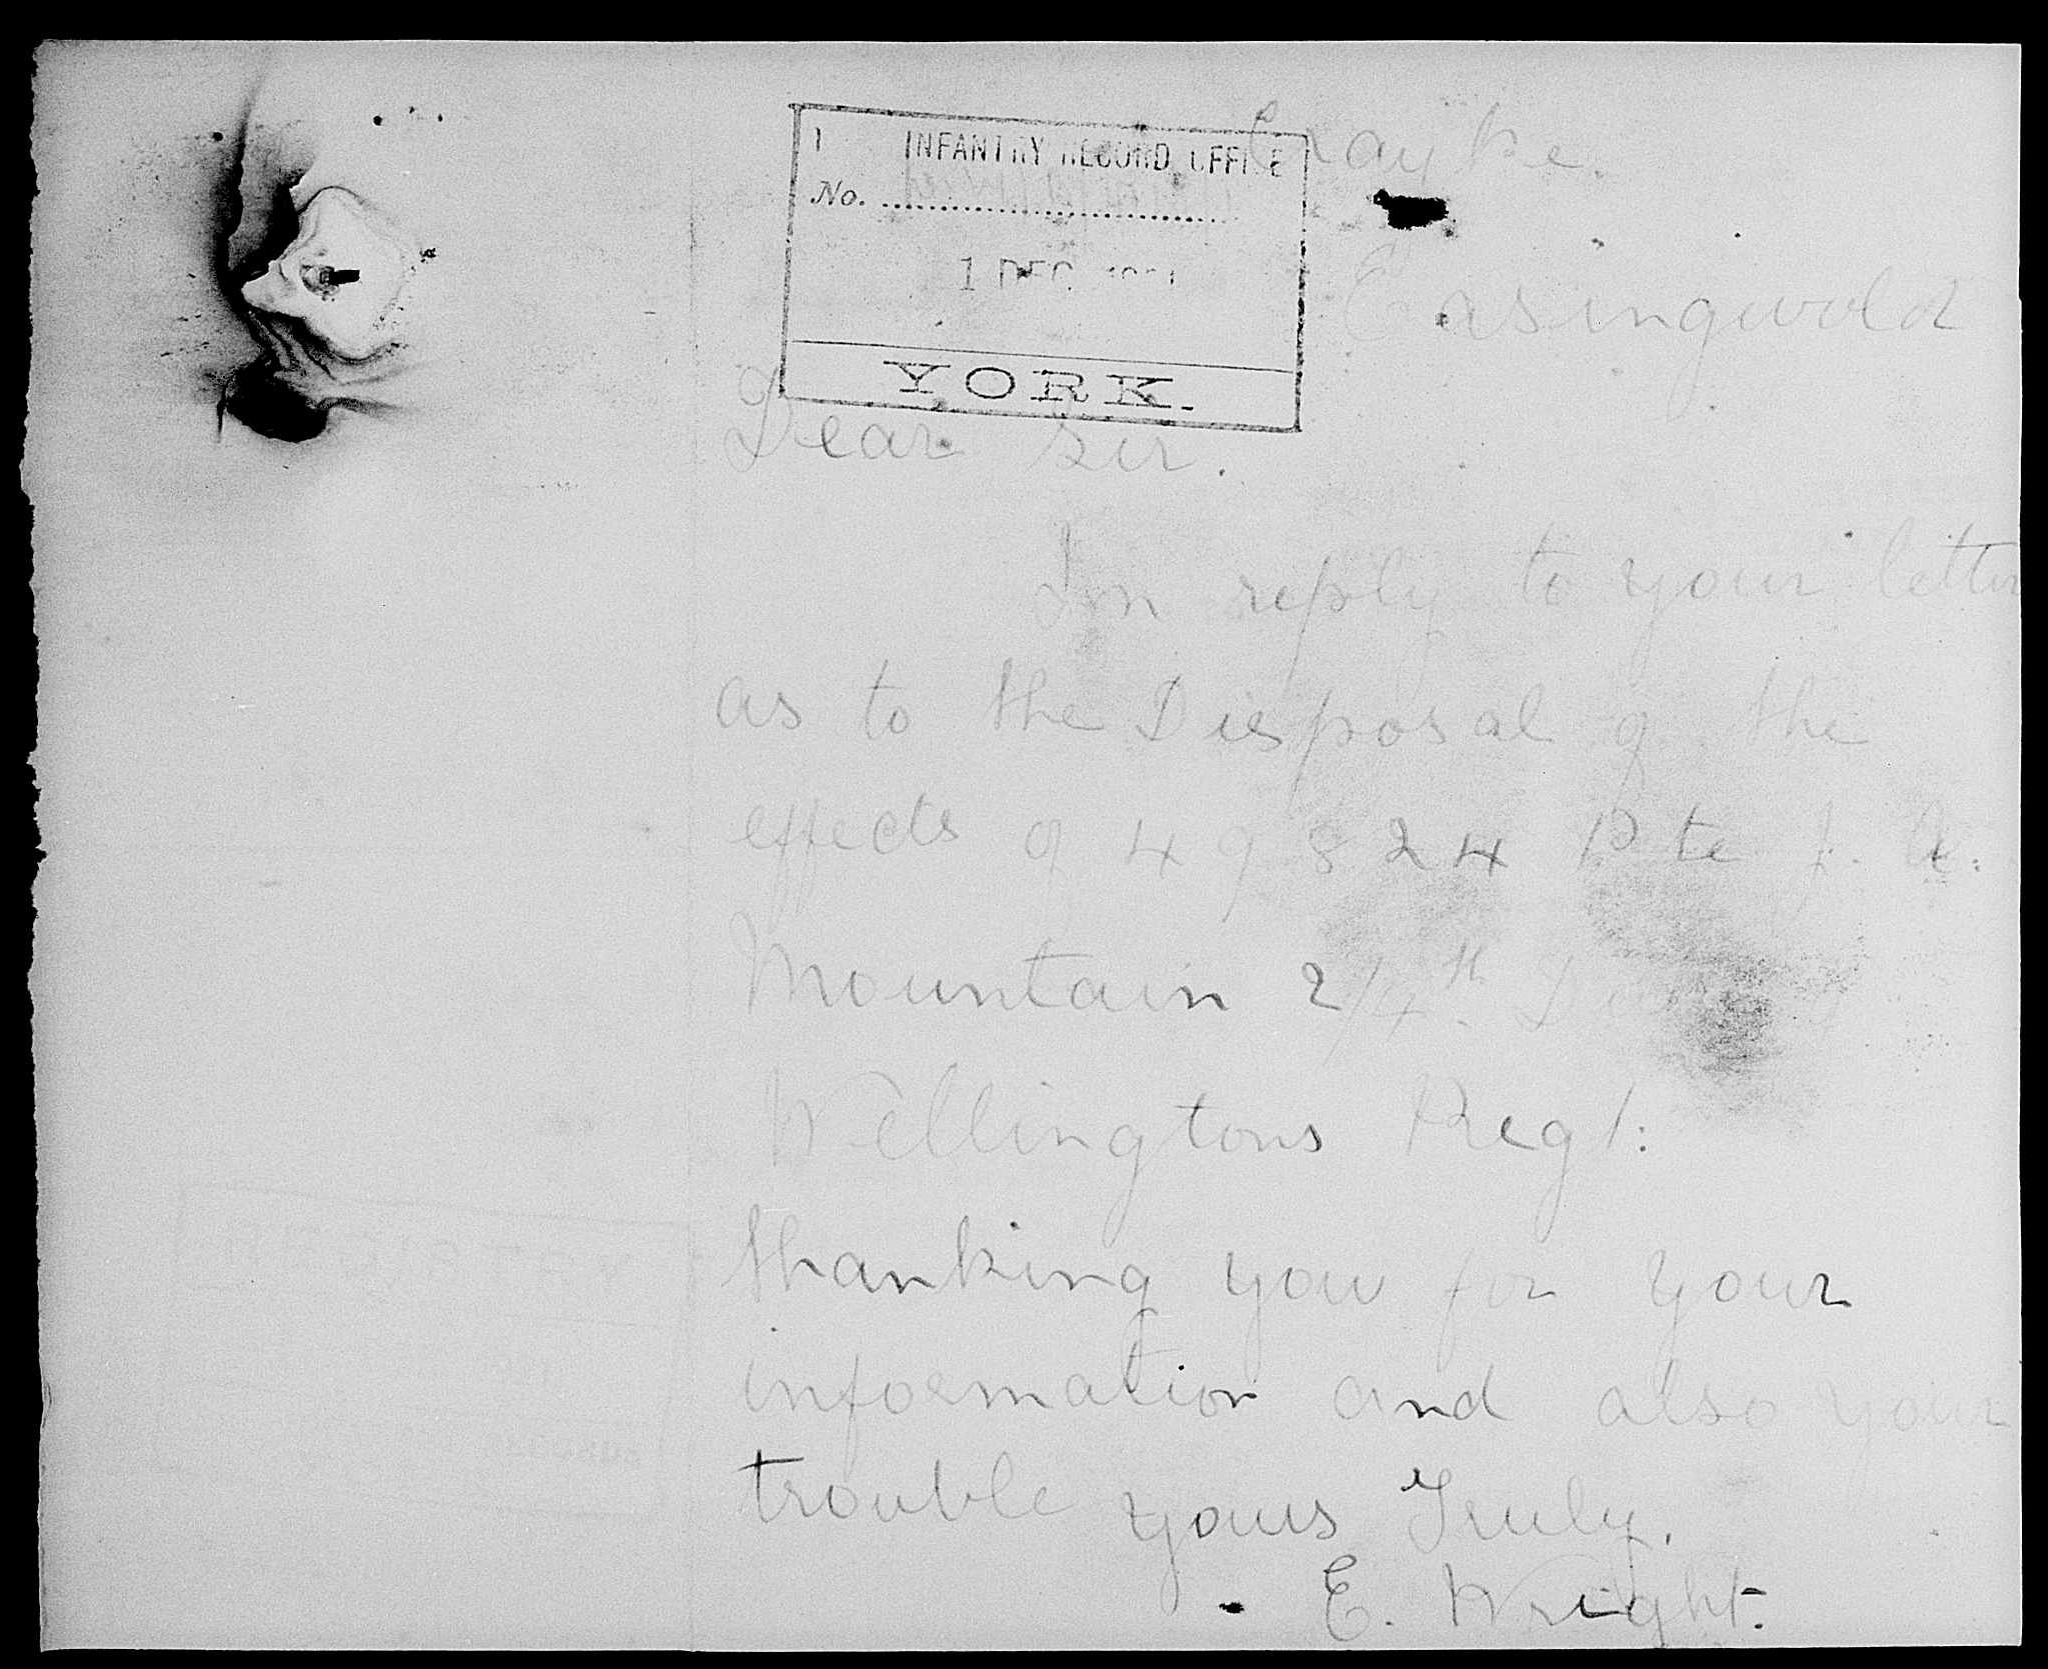 Crayke.
INFANTRY RECORD OFFICE
No.
1 DEC
YORK.
Easingwold
Dear Sir.
In reply to your letter
as to the Disposal of the
effects of 49824 Pte J.
Mountain 2/4th
Wellingtons Regt:
thanking you for your
information and also your
trouble yours Truly.
E. Wright.